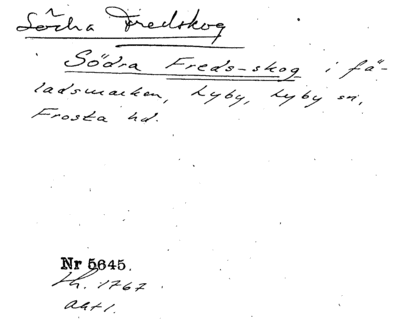 Södra Fredskog
Södra Freds-skog i fä-
ladsmarken, Lyby, Lyby sn,
Frosta hd.
Nr 5645.
Lh. 1767
akt 1.